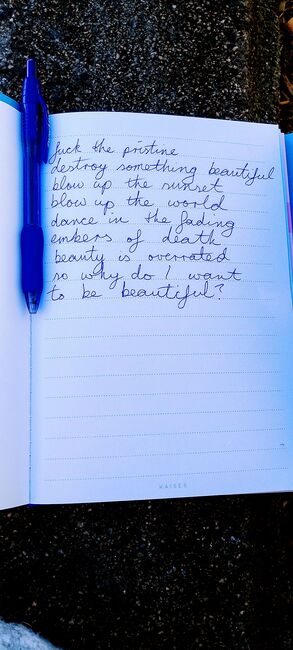 fuck the pristine
destroy something beautiful
blow up the sunset
blow up the world
dance in the fading
embers of death
beauty is overrated
so why do I want
to be beautiful?
KAISER